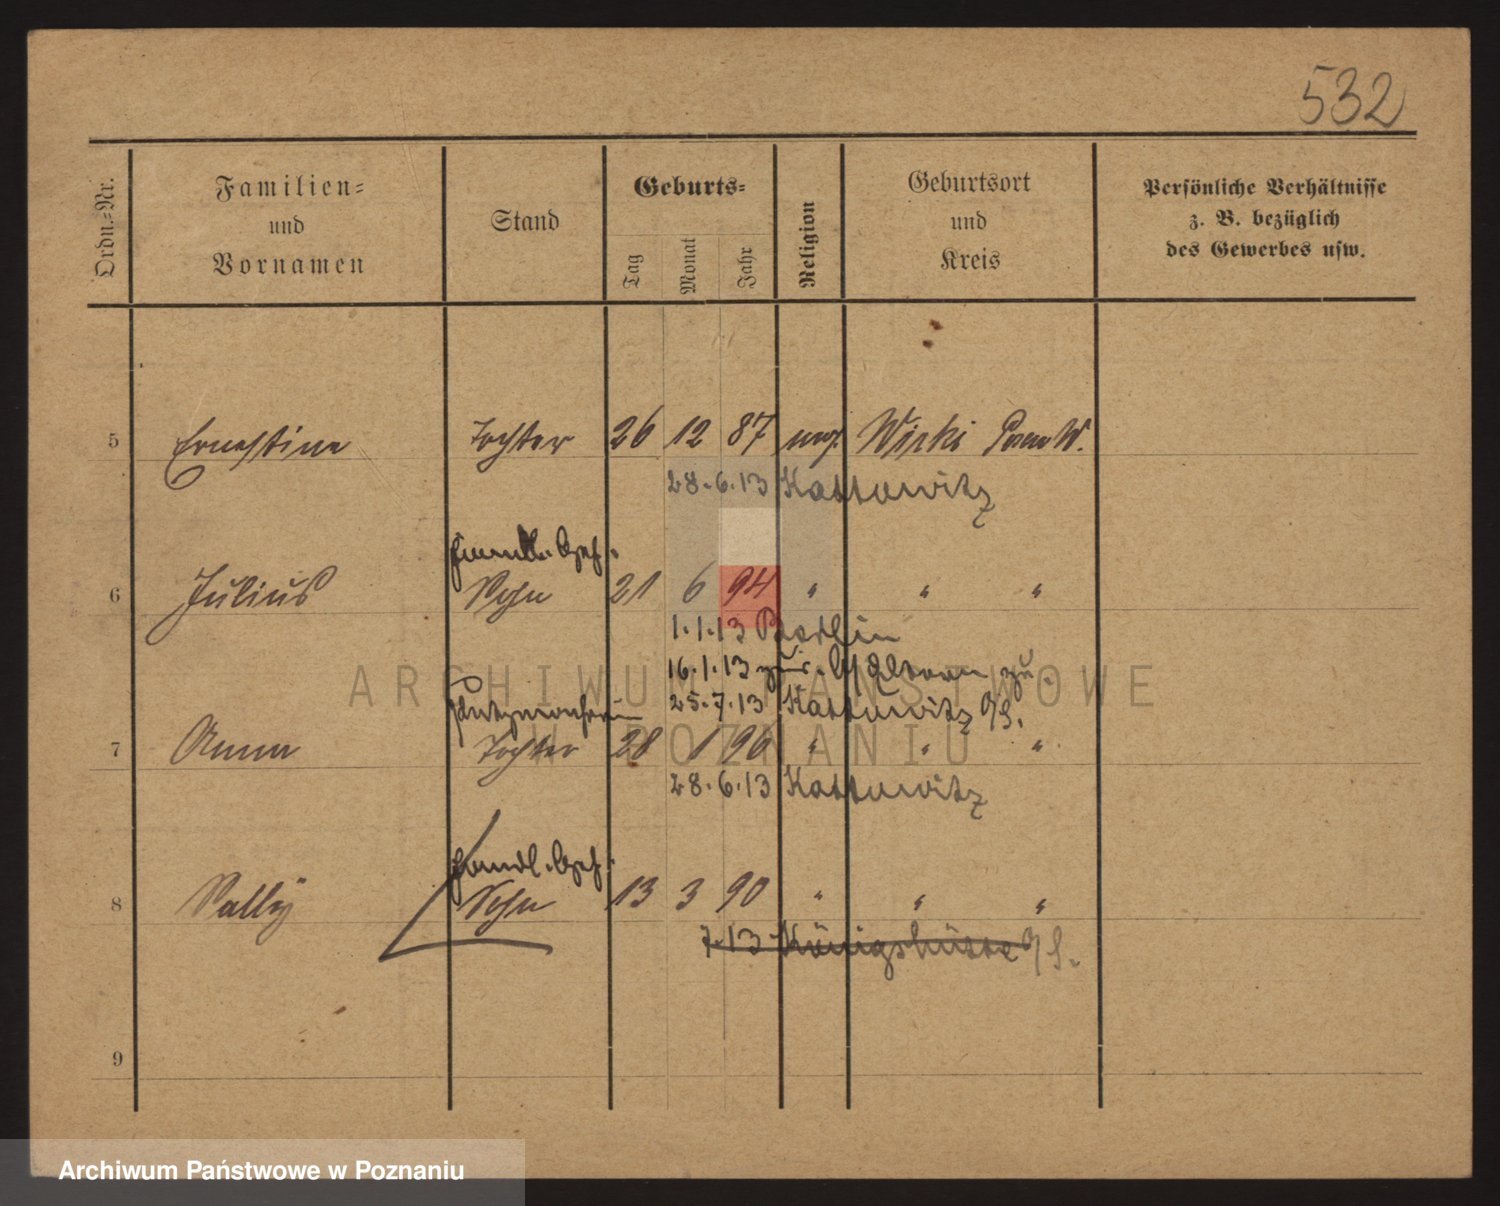 532
Ordn.-Nr.
Familien-
und
Vornamen
Stand
Geburts-
Tag
Monat
Jahr
Religion
Geburtsort
und
Kreis
Persönliche Verhältnisse
z. B. bezüglich
des Gewerbes usw.
5 Ernestine Tochter 26 12 87 Posen W.
28.6.13 Kattowitz
Handl. Geh.
6 Julius Sohn 21 6 94 " " "
1.1.13 Berlin
16.1.13 zur. v. Eltern zu.
25.7.13 Kattowitz O/S.
7 Anna Tochter 28 1 96 " " "
28.6.13 Kattowitz
Handl. Geh.
8 Sally Sohn 13 3 90 " " "
7.13 Königshütte O/S.
9
ARCHIWUM PAŃSTWOWE
W POZNANIU
Archiwum Państwowe w Poznaniu